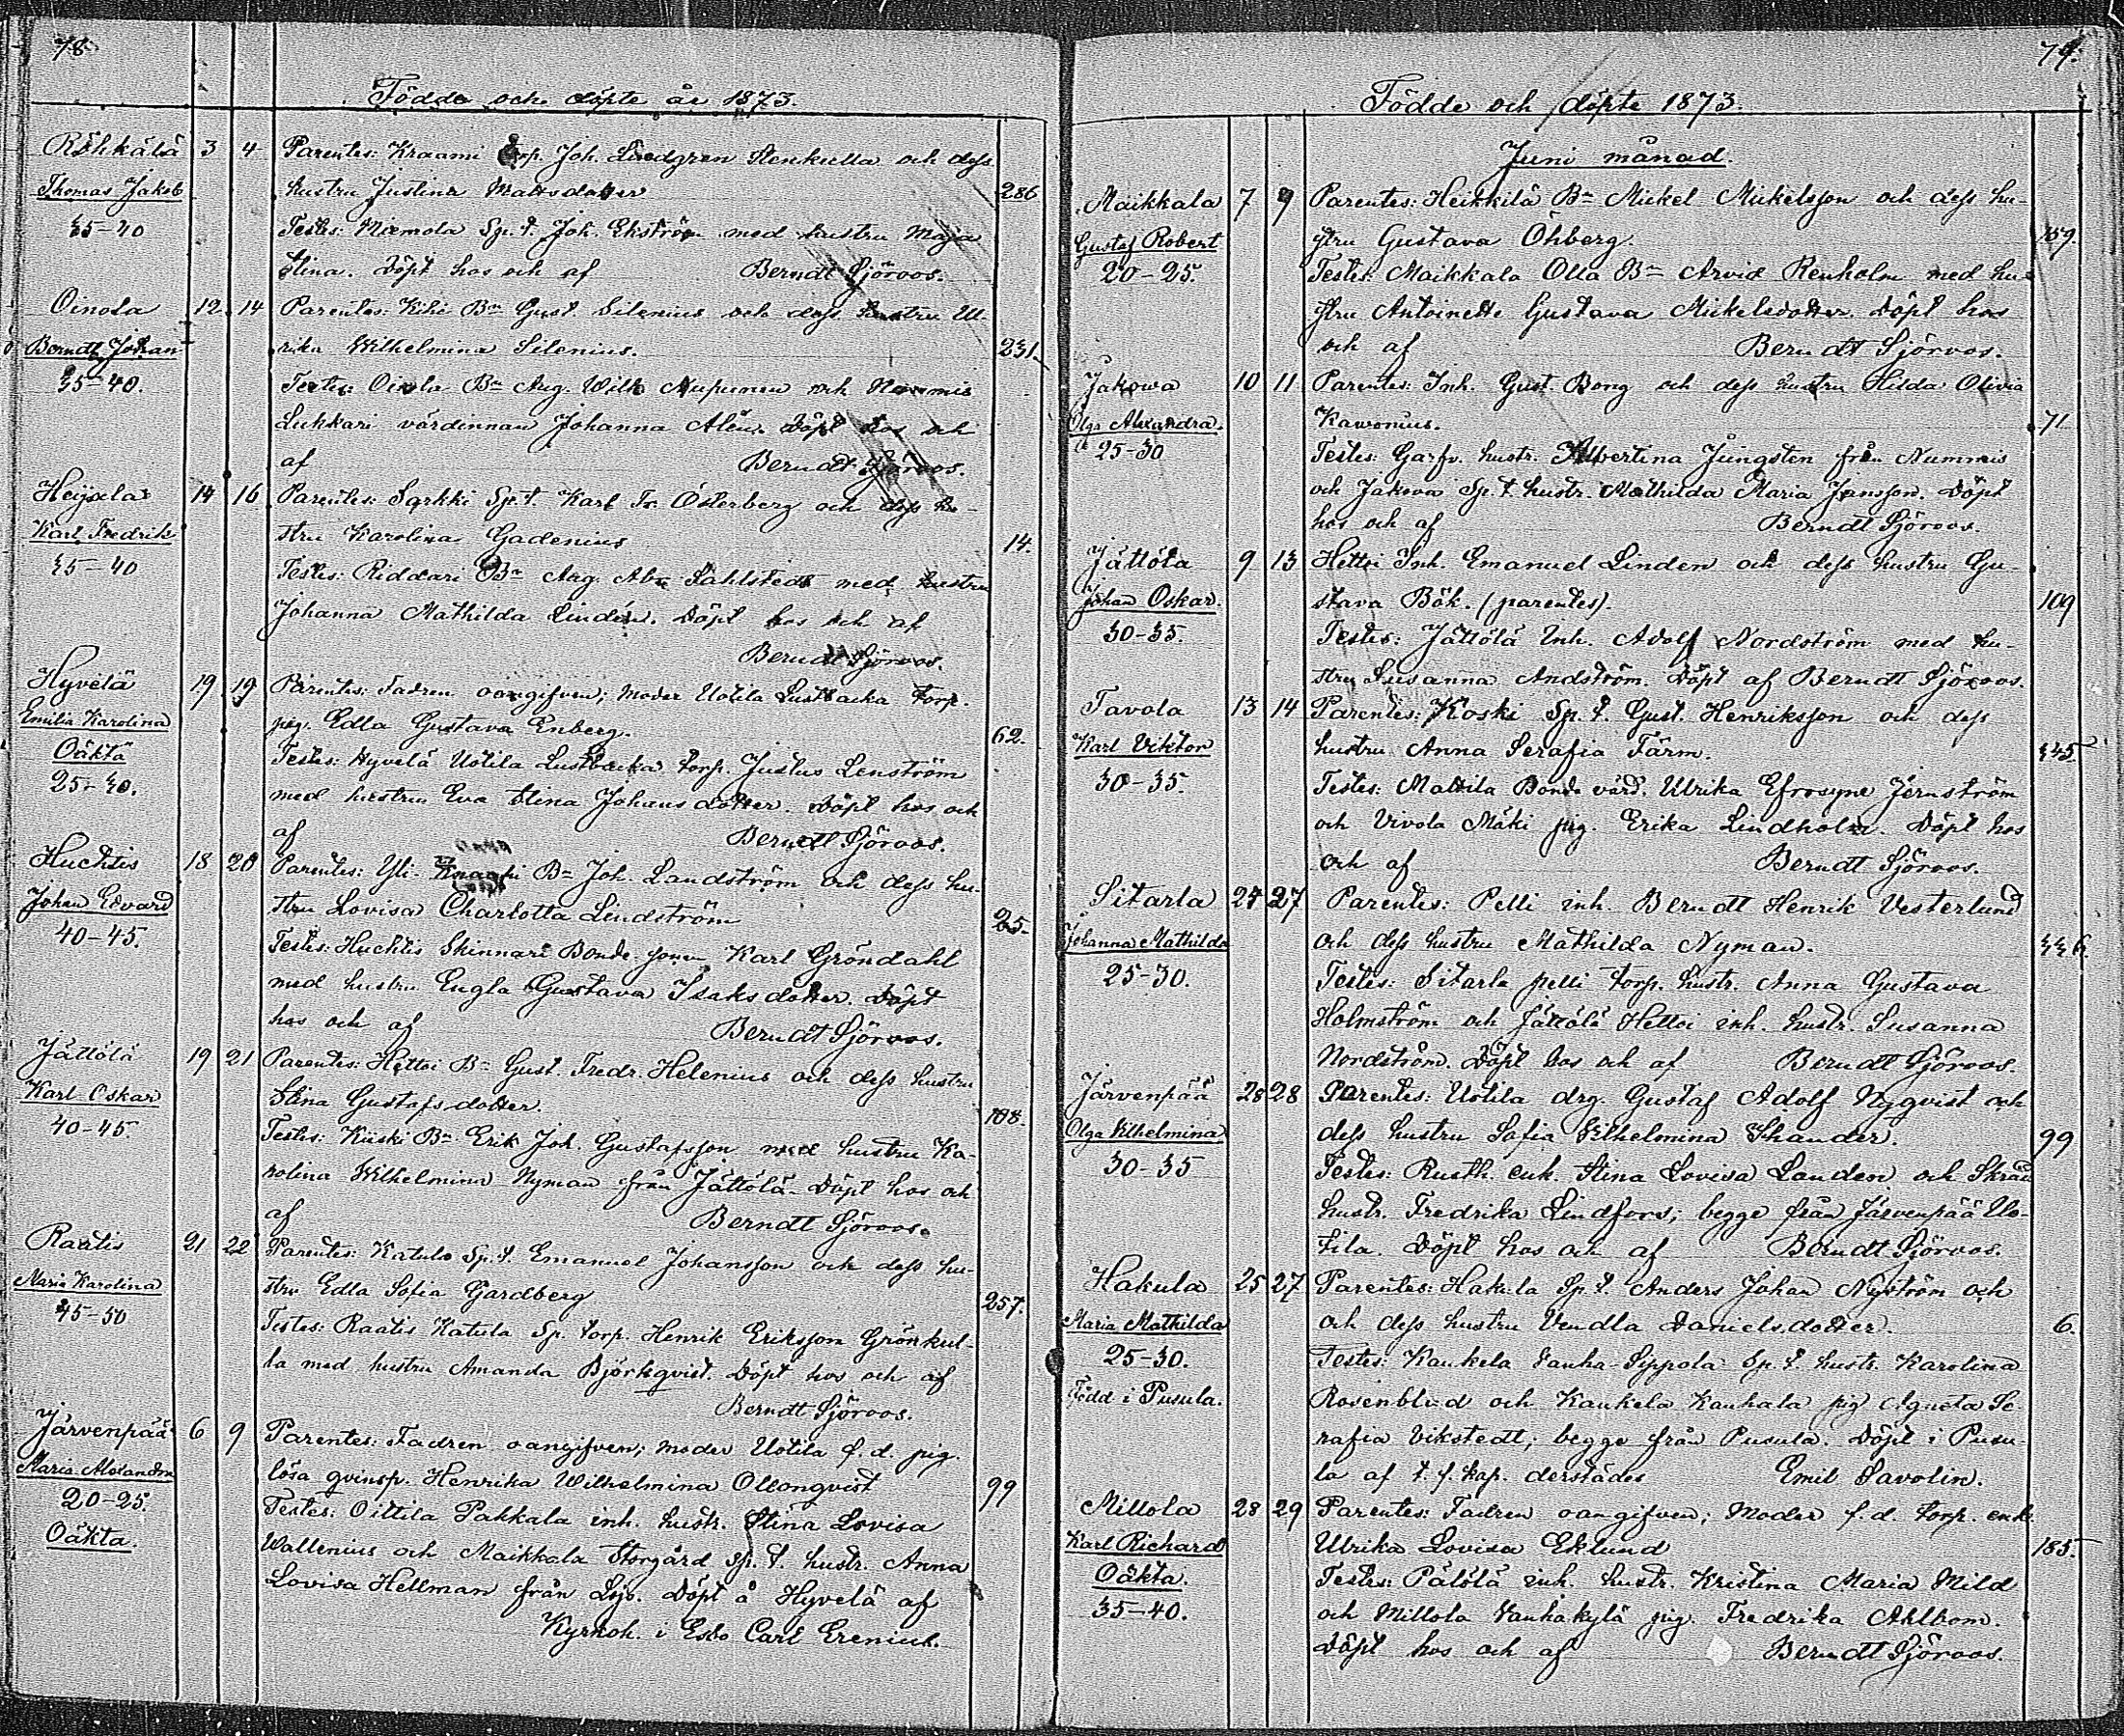 78.
Födde och döpte år 1873.
Röhkälä 3 4 Parentes: Kraami torp. Joh. Lindgren Stenkulla och dess
Thomas Jakob hustru Justina Mattsdotter 286
35-40 Testes: Niemola Sp. t. Joh. Ekström med hustru Maja
Stina. Döpt hos och af Berndt Sjöroos.
Oinola 12 14 Parentes: Kihi Bn Gust. Silenius och dess hustru Ul-
Berndt Johan rika Wilhelmina Silenius. 231.
35-40. Testes: Oinola Bn Aug. Wilh. Nupunen och Nummis
Lukkari värdinnan Johanna Alén. Döpt hos och
af Berndt Sjöroos.
Heijala 14 16 Parentes: Sarkki Sp. t. Karl Fr. Österberg och dess hu-
Karl Fredrik stru Karolina Gadenius 14.
35-40 Testes: Riddari Bn Aug. Abr. Dahlstedt med hustru
Johanna Mathilda Lindén. Döpt hos och af
Berndt Sjöroos.
Hyvelä 19 19 Parentes: Fadren oangifven; Moder Uotila Lustbacka torp.
Emilia Karolina pig. Edla Gustava Enberg. 62.
Oäkta Testes: Hyvelä Uotila Lustbacka torp. Justus Lenström
25-30. med hustru Eva Stina Johansdotter. Döpt hos och
af Berndt Sjöroos.
Huchtis 18 20 Parentes: Yli- Bn Joh. Landström och dess hu-
Johan Edvard stru Lovisa Charlotta Lindström 25.
40-45. Testes: Huchtis Skinnari Bonde sonen Karl Gröndahl
med hustru Engla Gustava Isaksdotter. Döpt
hos och af Berndt Sjöroos.
Jättölä 19 21 Parentes: Hettoi Bn Gust. Fredr. Helenius och dess hustru
Karl Oskar Stina Gustafsdotter. 108.
40-45. Testes: Kuski Bn Erik Joh. Gustafsson med hustru Ka-
rolina Wilhelmina Nyman från Jättölä. Döpt hos och
af Berndt Sjöroos.
Raatis 21 22 Parentes: Katulo Sp. t. Emanuel Johansson och dess hu-
Maria Karolina stru Edla Sofia Gardberg 257.
45-50 Testes: Raatis Katula Sp. torp. Henrik Eriksson Grönkul-
la med hustru Amanda Björkqvist. Döpt hos och af
Berndt Sjöroos.
Järvenpää 6 9 Parentes: Fadren oangifven; moder Uotila f. d. pig.
Maria Alexandra lösa qvinsp. Henrika Wilhelmina Ollonqvist 99
20-25. Testes: Oittila Pakkala inh. hustr. Stina Lovisa
Oäkta. Wallenius och Maikkala Storgård Sp. t. hustr. Anna
Lovisa Hellman från Lojo. Döpt å Hyvelä af
Kyrkoh. i Esbo Carl Grenius.
79.
Födde och döpte 1873.
Juni månad.
Maikkala 7 9 Parentes: Heikkilä Bn Mickel Mickelsson och dess hu-
Gustaf Robert stru Gustava Öhberg. 159.
20-25. Testes: Maikkala Olla Bn Arvid Renholm med hu-
stru Antoinette Gustava Mickelsdotter. Döpt hos
och af Berndt Sjöroos.
Jakowa 10 11 Parentes: Inh. Gust. Bong och dess hustru Hilda Olivia
Olga Alexandra. Kawonius. 71
25-30 Testes: Garfv. hustr. Albertina Jungsten från Nummis
och Jakova Sp. t. hustr. Mathilda Maria Jansson. Döpt
hos och af Berndt Sjöroos.
Jättölä 9 13 Hettoi Inh. Emanuel Linden och dess hustru Gu-
Johan Oskar. stava Bök. (parentes). 109
30-35. Testes: Jättölä Inh. Adolf Nordström med hu-
stru Susanna Andström. Döpt af Berndt Sjöroos.
Tavola 13 14 Parentes: Koski Sp. t. Gust. Henriksson och dess
Karl Viktor hustru Anna Serafia Färm. 345.
30-35. Testes: Mattila Bonde värd. Ulrika Efrosyne Jernström
och Vivola Mäki pig. Erika Lindholm. Döpt hos
och af Berndt Sjöroos.
Sitarla 24 27 Parentes: Pelli inh. Berndt Henrik Vesterlund
Johanna Mathilda och dess hustru Mathilda Nyman. 336.
25-30. Testes: Sitarla pelli torp. hustr. Anna Gustava
Holmström och Jättölä Hettoi inh. hustr. Susanna
Nordström. Döpt hos och af Berndt Sjöroos.
Järvenpää 28 28 Parentes: Uotila drg. Gustaf Adolf Nyqvist och
Olga Vilhelmina dess hustru Sofia Vilhelmina Skander. 99
30-35 Testes: Rusth. enk. Stina Lovisa Landen och Skrädd.
hustr. Fredrika Lindfors; begge från Järvenpää Uo-
tila. Döpt hos och af Berndt Sjöroos.
Hakula 25 27 Parentes: Hakula Sp. t. Anders Johan Nyström och
Maria Mathilda och dess hustru Vendla Danielsdotter. 6.
25-30. Testes: Kaukela Vanha-Sippola Sp. t. hustr. Karolina
Född i Pusula. Rosenblad och Kaukela Kauhala pig Agusta Se-
rafia Vikstedt; begge från Pusula. Döpt i Pusu-
la af t. f. kap. derstädes Emil Savolin.
Millola 28 29 Parentes: Fadren oangifven; Moder f. d. torp. enk.
Karl Richard Ulrika Lovisa Eklund 185.
Oäkta. Testes: Pälölä inh. hustr. Kristina Maria Mild
35-40. och Millola Vanhakylä pig. Fredrika Ahlbom.
Döpt hos och af Berndt Sjöroos.